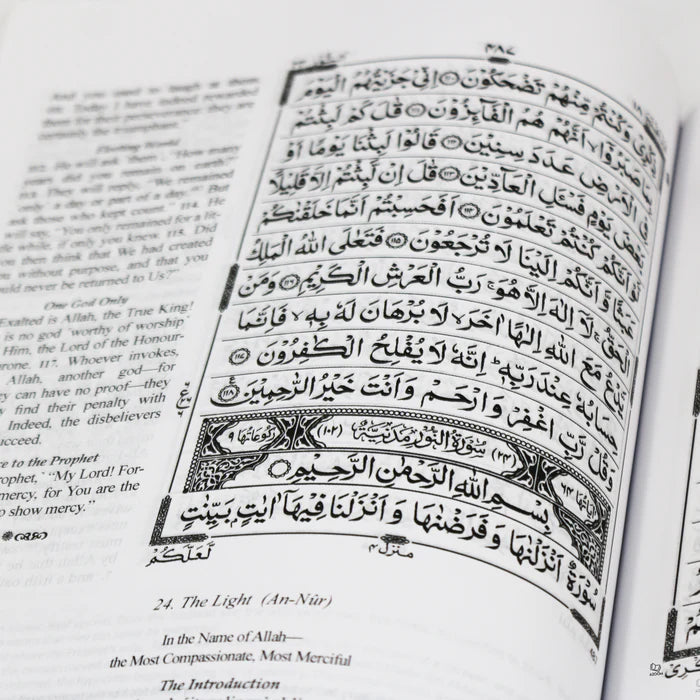 And you used to laugh at them
me. Today I have indeed rewarded
them for their perseverance: they are
certainly the triumphant."
Fleeting World
112. He will ask ˹them˺, "How many
years did you remain on earth?"
113. They will reply, "We remained
˹only˺ a day or part of a day. But
ask those who kept count." 114. He
will say, "You only remained for a lit-
tle while, if only you knew. 115. Did
you then think that We had created
you without purpose, and that you
would never be returned to Us?"
One God Only
Exalted is Allah, the True King!
is no god ˹worthy of worship˺
Him, the Lord of the Honour-
rone. 117. Whoever invokes,
Allah, another god—for
ey can have no proof—they
y find their penalty with
Indeed, the disbelievers
ucceed.
re to the Prophet
rophet,˺ "My Lord! For-
mercy, for You are the
o show mercy."
٤٨٧
ذِكْرِيْ وَكُنْتُمْ مِّنْهُمْ تَضْحَكُوْنَ ١١٠ اِنِّيْ جَزَيْتُهُمُ الْيَوْمَ
بِمَا صَبَرُوْۤا اَنَّهُمْ هُمُ الْفَآئِزُوْنَ ١١١ قٰلَ كَمْ لَبِثْتُمْ
فِي الْاَرْضِ عَدَدَ سِنِيْنَ ١١٢ قَالُوْا لَبِثْنَا يَوْمًا اَوْ
بَعْضَ يَوْمٍ فَسْـَٔلِ الْعَآدِّيْنَ ١١٣ قٰلَ اِنْ لَّبِثْتُمْ اِلَّا قَلِيْلًا
لَّوْ اَنَّكُمْ كُنْتُمْ تَعْلَمُوْنَ ١١٤ اَفَحَسِبْتُمْ اَنَّمَا خَلَقْنٰكُمْ
عَبَثًا وَّاَنَّكُمْ اِلَيْنَا لَا تُرْجَعُوْنَ ١١٥ فَتَعٰلَى اللّٰهُ الْمَلِكُ
الْحَقُّ لَاۤ اِلٰهَ اِلَّا هُوَ رَبُّ الْعَرْشِ الْكَرِيْمِ ١١٦ وَمَنْ
يَّدْعُ مَعَ اللّٰهِ اِلٰهًا اٰخَرَ لَا بُرْهَانَ لَهٗ بِهٖ فَاِنَّمَا
حِسَابُهٗ عِنْدَ رَبِّهٖ اِنَّهٗ لَا يُفْلِحُ الْكٰفِرُوْنَ ١١٧
وَقُلْ رَّبِّ اغْفِرْ وَارْحَمْ وَاَنْتَ خَيْرُ الرّٰحِمِيْنَ ١١٨
اٰيَاتُهَا ٦٤ (٢٤) سُوْرَةُ النُّوْرِ مَدَنِيَّةٌ (١٠٢) رُكُوْعَاتُهَا ٩
بِسْمِ اللّٰهِ الرَّحْمٰنِ الرَّحِيْمِ
سُوْرَةٌ اَنْزَلْنٰهَا وَفَرَضْنٰهَا وَاَنْزَلْنَا فِيْهَاۤ اٰيٰتٍۭ بَيِّنٰتٍ
لَّعَلَّكُمْ
منزل ٤
24. The Light (An-Nûr)
In the Name of Allah—
the Most Compassionate, Most Merciful
The Introduction